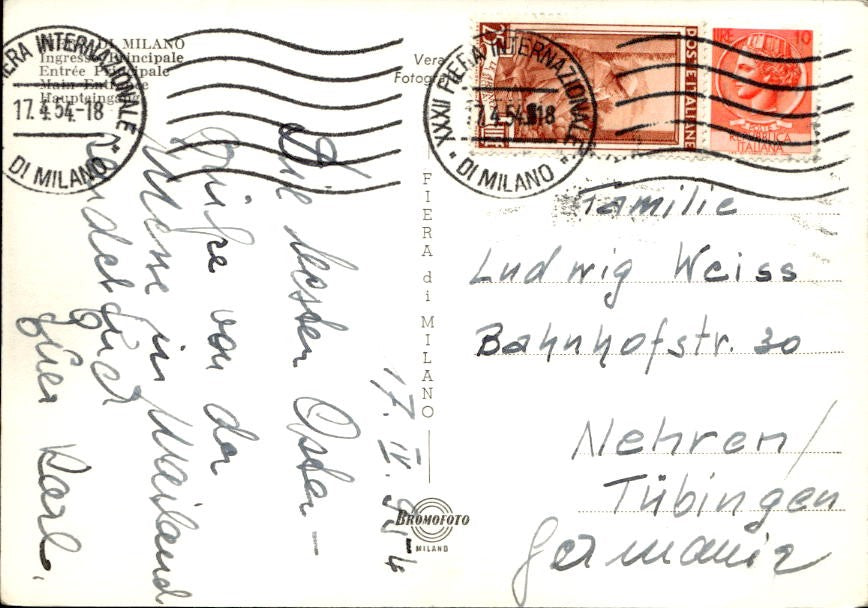 FIERA DI MILANO
Ingresso Principale
Entrée Principale
Main Entrance
Haupteingang
FIERA INTERNAZIONALE
17.4.54-18
DI MILANO
Vera
Fotografia
XXXII FIERA INTERNAZIONALE
17.4.54 18
DI MILANO
25
LIRE
POSTE ITALIANE
LIRE 10
POSTE
REPUBBLICA
ITALIANA
17. IV. 54
Die besten Oster-
grüße von der
Messe in Mailand
sendet Euch
Euer Karl.
FIERA di MILANO
BROMOFOTO
MILANO
Familie
Ludwig Weiss
Bahnhofstr. 30
Nehren/
Tübingen
Germania